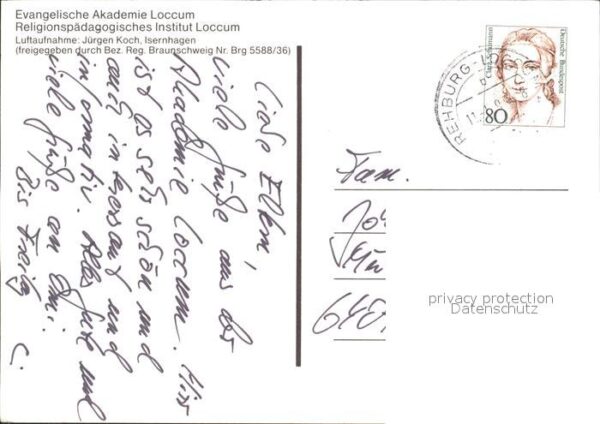 Evangelische Akademie Loccum
Religionspädagogisches Institut Loccum
Luftaufnahme: Jürgen Koch, Isernhagen
(freigegeben durch Bez. Reg. Braunschweig Nr. Brg 5588/36)
Liebe Eltern,
viele Grüße aus der
Akademie Loccum. Hier
ist es sehr schön und
auch interessant und
informativ. Alles Gute und
viele Grüße an Omi.
Bis Freitag
C.
REHBURG-LO
11.
Clara Schumann
Deutsche Bundespost
80
Fam.
Jo
Mü
640
privacy protection
Datenschutz